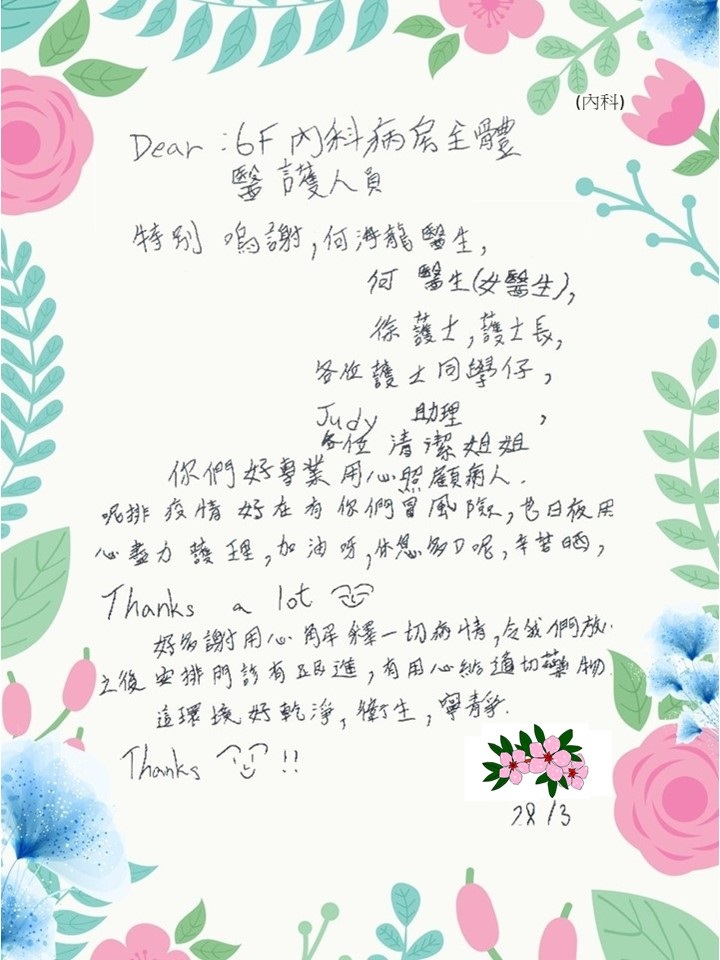 (內科)
Dear : 6F 內科病房全體
醫護人員
特別嗚謝, 何海龍醫生,
何醫生(女醫生),
徐護士, 護士長,
各位護士同學仔,
Judy 助理,
各位清潔姐姐
你們好專業用心照顧病人.
呢排疫情好在有你們冒風險, 日夜用
心盡力護理, 加油呀, 休息多D呢, 辛苦晒,
Thanks a lot
好多謝用心解釋一切病情, 令我們放.
之後安排門診有跟進, 有用心給適切藥物.
這環境好乾淨, 衛生, 寧靜.
Thanks !!
28/3